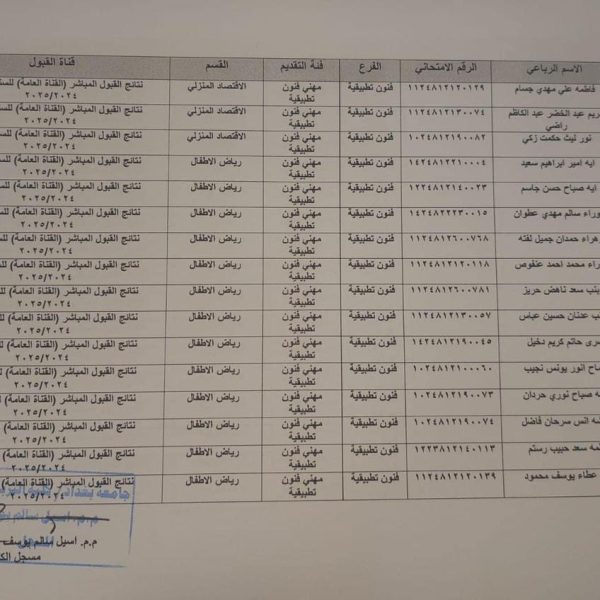 الاسم الرباعي الرقم الامتحاني الفرع فئة التقديم القسم قناة القبول
فاطمه علي مهدي جسام ١١٢٤٨١٢١٢٠١٢٩ فنون تطبيقية مهني فنون تطبيقية الاقتصاد المنزلي نتائج القبول المباشر (القناة العامة) ٢٠٢٥/٢٠٢٤
عبد الخضر عبد الكاظم راضي ١١٢٤٨١٢١٣٠٠٧٤ فنون تطبيقية مهني فنون تطبيقية الاقتصاد المنزلي نتائج القبول المباشر (القناة العامة) ٢٠٢٥/٢٠٢٤
نور ليث حكمت زكي ١٠٢٤٨١٢١٩٠٠٨٢ فنون تطبيقية مهني فنون تطبيقية الاقتصاد المنزلي نتائج القبول المباشر (القناة العامة) ٢٠٢٥/٢٠٢٤
ايه امير ابراهيم سعيد ١٤٢٤٨١٢٢١٠٠٠٤ فنون تطبيقية مهني فنون تطبيقية رياض الاطفال نتائج القبول المباشر (القناة العامة) ٢٠٢٥/٢٠٢٤
ايه صباح حسن جاسم ١٢٢٤٨١٢١٤٠٠٢٣ فنون تطبيقية مهني فنون تطبيقية رياض الاطفال نتائج القبول المباشر (القناة العامة) ٢٠٢٥/٢٠٢٤
سالم مهدي عطوان ١٤٢٤٨٢٢٢٣٠٠١٥ فنون تطبيقية مهني فنون تطبيقية رياض الاطفال نتائج القبول المباشر (القناة العامة) ٢٠٢٥/٢٠٢٤
حمدان جميل لفته ١١٢٤٨١٢٦٠٠٧٦٨ فنون تطبيقية مهني فنون تطبيقية رياض الاطفال نتائج القبول المباشر (القناة العامة) ٢٠٢٥/٢٠٢٤
محمد احمد عنفوص ١٠٢٤٨١٢١٢٠١١٨ فنون تطبيقية مهني فنون تطبيقية رياض الاطفال نتائج القبول المباشر (القناة العامة) ٢٠٢٥/٢٠٢٤
سعد ناهض حريز ١١٢٤٨١٢٦٠٠٧٨١ فنون تطبيقية مهني فنون تطبيقية رياض الاطفال نتائج القبول المباشر (القناة العامة) ٢٠٢٥/٢٠٢٤
عدنان حسين عباس ١١٢٤٨١٢١٣٠٠٥٧ فنون تطبيقية مهني فنون تطبيقية رياض الاطفال نتائج القبول المباشر (القناة العامة) ٢٠٢٥/٢٠٢٤
حاتم كريم دخيل ١٠٢٤٨١٢١٩٠٠٤٥ فنون تطبيقية مهني فنون تطبيقية رياض الاطفال نتائج القبول المباشر (القناة العامة) ٢٠٢٥/٢٠٢٤
انور يونس نجيب ١٠٢٤٨١٢١٠٠٠٦٠ فنون تطبيقية مهني فنون تطبيقية رياض الاطفال نتائج القبول المباشر (القناة العامة) ٢٠٢٥/٢٠٢٤
صباح نوري حردان ١٠٢٤٨١٢١٩٠٠٧٣ فنون تطبيقية مهني فنون تطبيقية رياض الاطفال نتائج القبول المباشر (القناة العامة) ٢٠٢٥/٢٠٢٤
انس سرحان فاضل ١٠٢٤٨١٢١٩٠٠٧٤ فنون تطبيقية مهني فنون تطبيقية رياض الاطفال نتائج القبول المباشر (القناة العامة) ٢٠٢٥/٢٠٢٤
سعد حبيب رستم ١٢٢٣٨١٢١٤٠١١٣ فنون تطبيقية مهني فنون تطبيقية رياض الاطفال نتائج القبول المباشر (القناة العامة) ٢٠٢٥/٢٠٢٤
عطاء يوسف محمود ١١٢٤٨١٢١٢٠١٣٩ فنون تطبيقية مهني فنون تطبيقية رياض الاطفال نتائج القبول المباشر (القناة العامة) ٢٠٢٥/٢٠٢٤
جامعة بغداد
م.م. اسيل سالم
م.م. اسيل سالم يوسف
مسجل